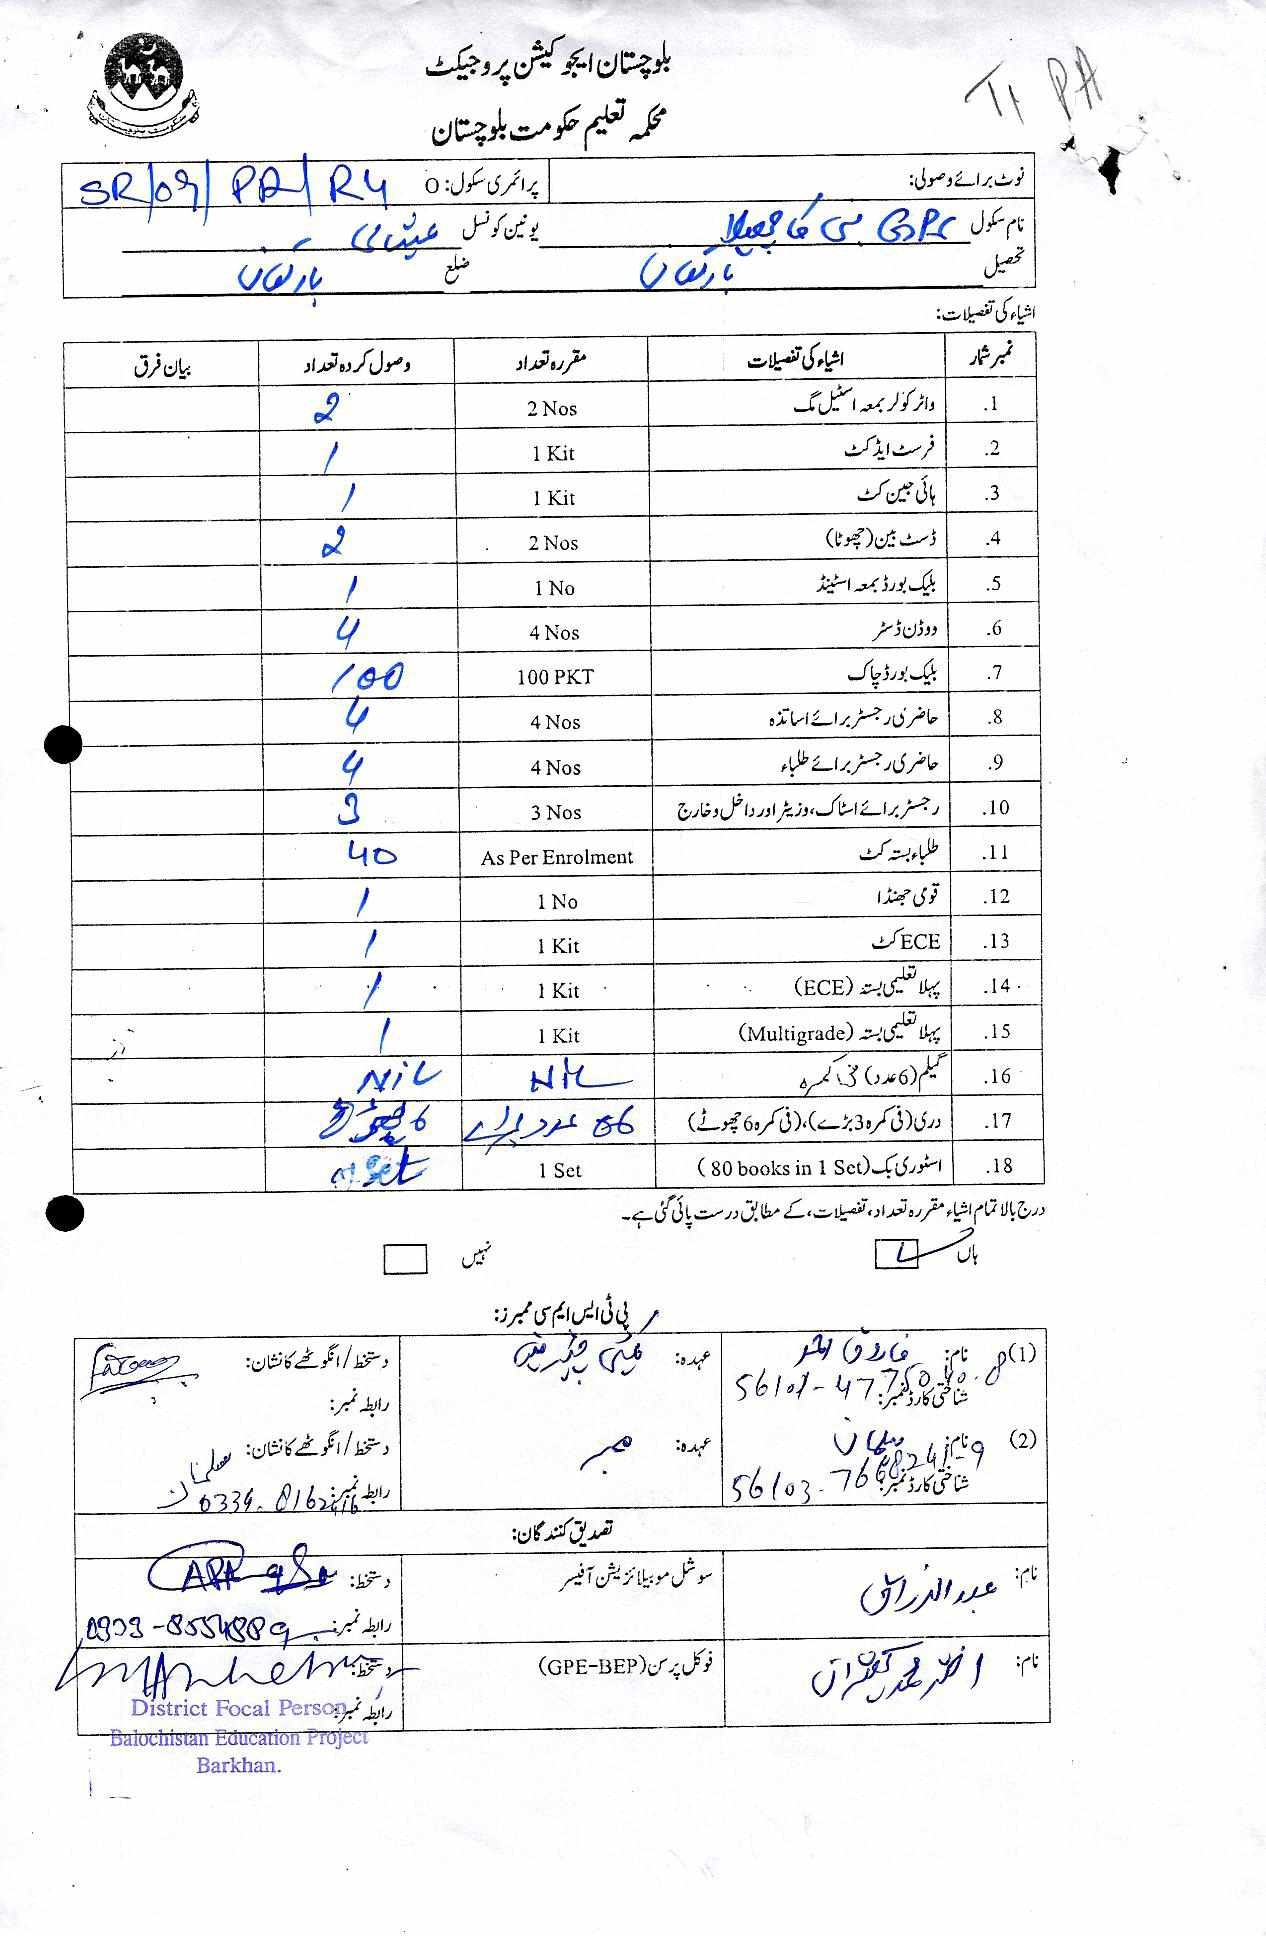 بلوچستان ایجوکیشن پروجیکٹ
محکمہ تعلیم حکومت بلوچستان
نوٹ برائے وصولی: پرائمری سکول: O SR/09/PR/R4
نام سکول GPS یونین کونسل
تحصیل بارکھان ضلع بارکھان
اشیاء کی تفصیلات:
نمبر شمار اشیاء کی تفصیلات مقررہ تعداد وصول کردہ تعداد بیان فرق
1. واٹر کولر بمعہ اسٹیل مگ 2 Nos 2
2. فرسٹ ایڈ کٹ 1 Kit 1
3. ہائی جین کٹ 1 Kit 1
4. ڈسٹ بین (چھوٹا) 2 Nos 2
5. بلیک بورڈ بمعہ اسٹینڈ 1 No 1
6. ووڈن ڈسٹر 4 Nos 4
7. بلیک بورڈ چاک 100 PKT 100
8. حاضری رجسٹر برائے اساتذہ 4 Nos 4
9. حاضری رجسٹر برائے طلباء 4 Nos 4
10. رجسٹر برائے اسٹاک، وزیٹر اور داخل وخارج 3 Nos 3
11. طلباء بستہ کٹ As Per Enrolment 40
12. قومی جھنڈا 1 No 1
13. ECE کٹ 1 Kit 1
14. پہلا تعلیمی بستہ (ECE) 1 Kit 1
15. پہلا تعلیمی بستہ (Multigrade) 1 Kit 1
16. گیلم (6 عدد) فی کمرہ NIL NiL
17. دری (فی کمرہ 3 بڑے)، (فی کمرہ 6 چھوٹے) 06 عدد 6
18. اسٹوری بک (80 books in 1 Set) 1 Set Set
درج بالا تمام اشیاء مقررہ تعداد، تفصیلات، کے مطابق درست پائی گئی ہے۔
ہاں نہیں
پی ٹی ایس ایم سی ممبرز:
(1) نام: فاروق احمد عہدہ: دستخط/انگوٹھے کا نشان:
شناختی کارڈ نمبر: رابطہ نمبر:
(2) نام: سلمان عہدہ: ممبر دستخط/انگوٹھے کا نشان: سلمان
شناختی کارڈ نمبر: 56103-7668241-9 رابطہ نمبر:
تصدیق کنندگان:
نام: عبدالرزاق سوشل موبیلائزیشن آفیسر دستخط:
رابطہ نمبر:
نام: اختر محمد کھیتران فوکل پرسن (GPE-BEP) دستخط:
رابطہ نمبر:
District Focal Person
Balochistan Education Project
Barkhan.